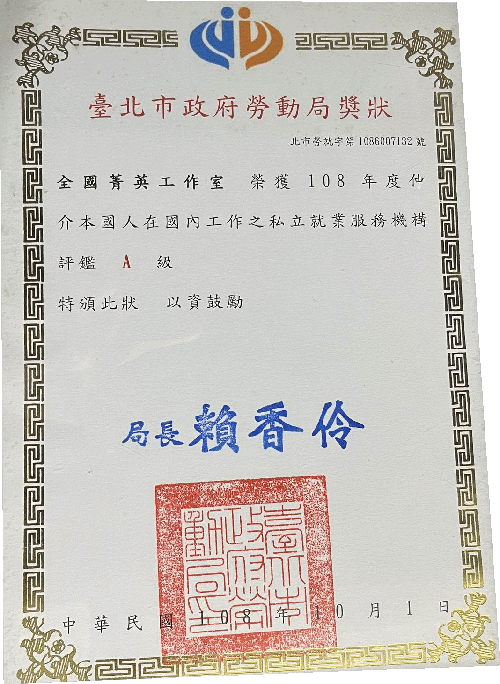 臺北市政府勞動局獎狀
北市勞就字第1086007132號
全國菁英工作室 榮獲 108 年度仲
介本國人在國內工作之私立就業服務機構
評鑑 A 級
特頒此狀 以資鼓勵
局長賴香伶
臺北市
政府勞
動局印
中華民國108年10月1日